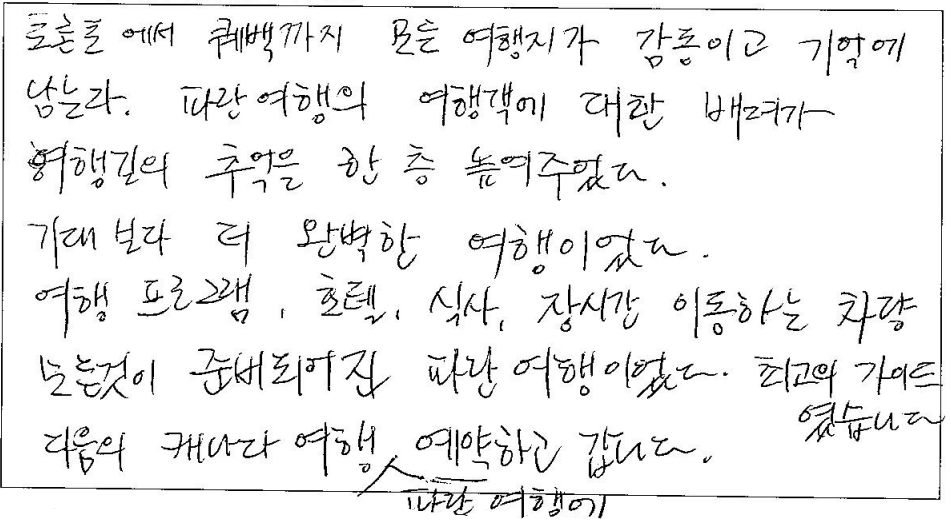 토론토에서 퀘백까지 모든 여행지가 감동이고 기억에
남는다. 파란여행의 여행객에 대한 배려가
여행길의 추억을 한 층 높여주었다.
기대보다 더 완벽한 여행이었다.
여행 프로그램, 호텔, 식사, 장시간 이동하는 차량
모든것이 준비되어진 파란여행이었다. 최고의 가이드
였습니다
다음의 캐나다 여행 예약하고 갑니다.
파란 여행에